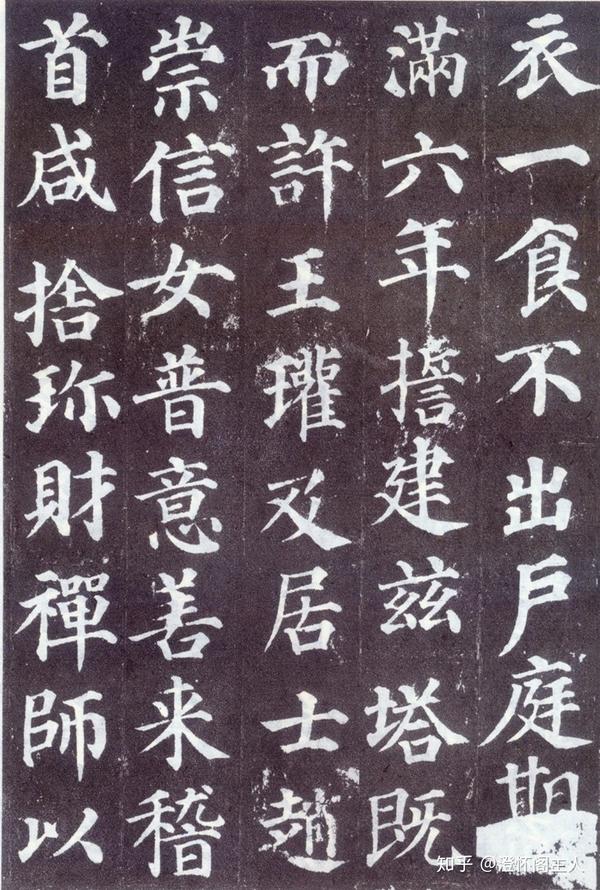 衣一食不出戶庭期
滿六年誓建茲塔既
而許王瓘及居士趙
崇信女普意善来稽
首咸捨珎財禪師以
知乎 @澄怀阁主人